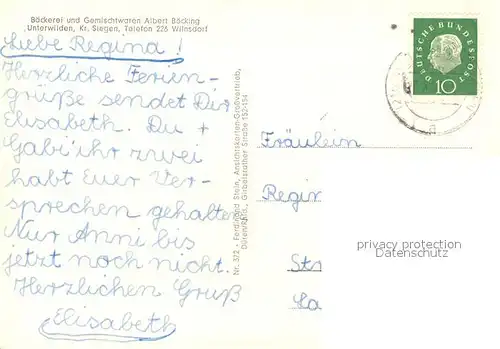 Bäckerei und Gemischtwaren Albert Böcking
Unterwilden, Kr. Siegen, Telefon 226 Wilnsdorf
Liebe Regina!
Herzliche Ferien-
grüße sendet Dir
Elisabeth. Du +
Gabi ihr zwei
habt Euer Ver-
sprechen gehalten
Nur Anni bis
jetzt noch nicht.
Herzlichen Gruß
Elisabeth
Nr. 372 • Ferdinand Stein, Ansichtskarten-Großvertrieb,
Düren/Rhld., Girbelsrather Straße 152-154
DEUTSCHE BUNDESPOST
10
Fräulein
Regin
Str
La
privacy protection
Datenschutz